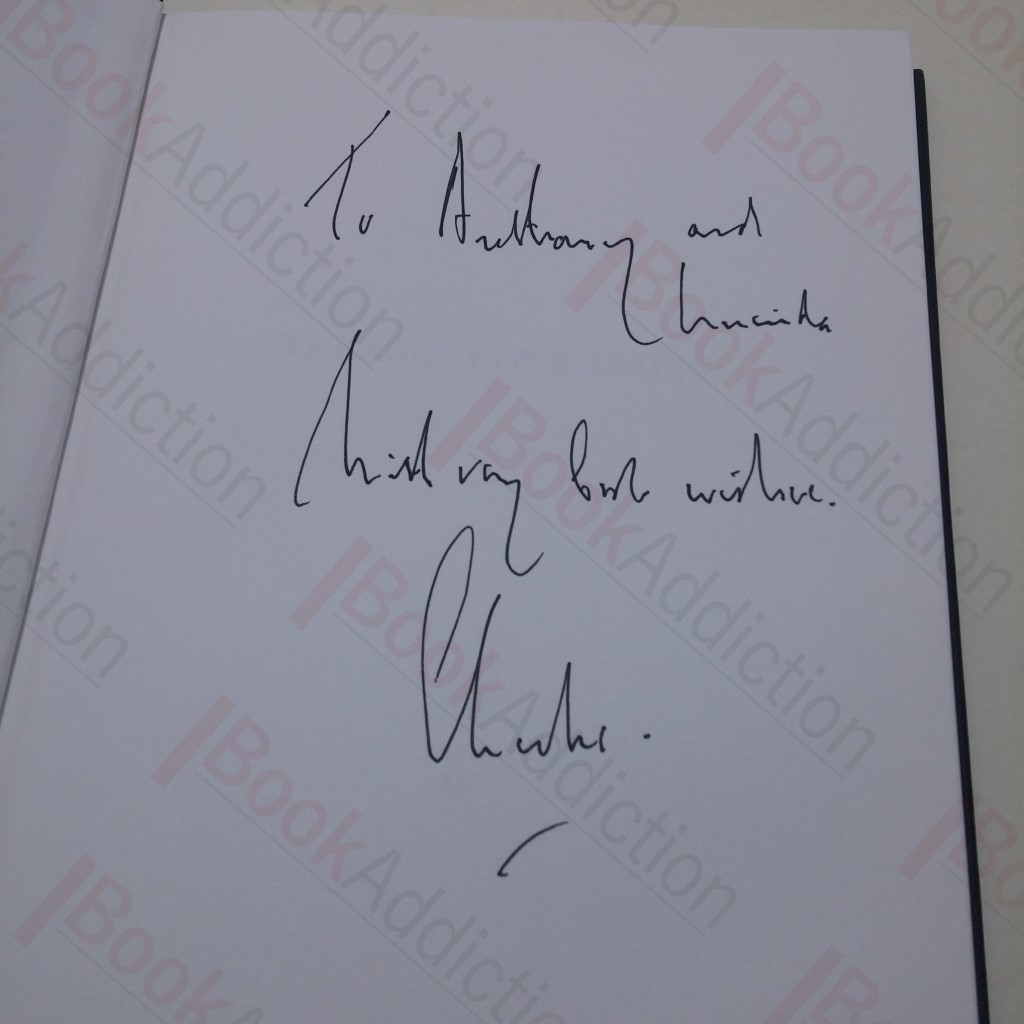 To Anthony and
Lucinda
With very best wishes.
Charles.
BookAddiction